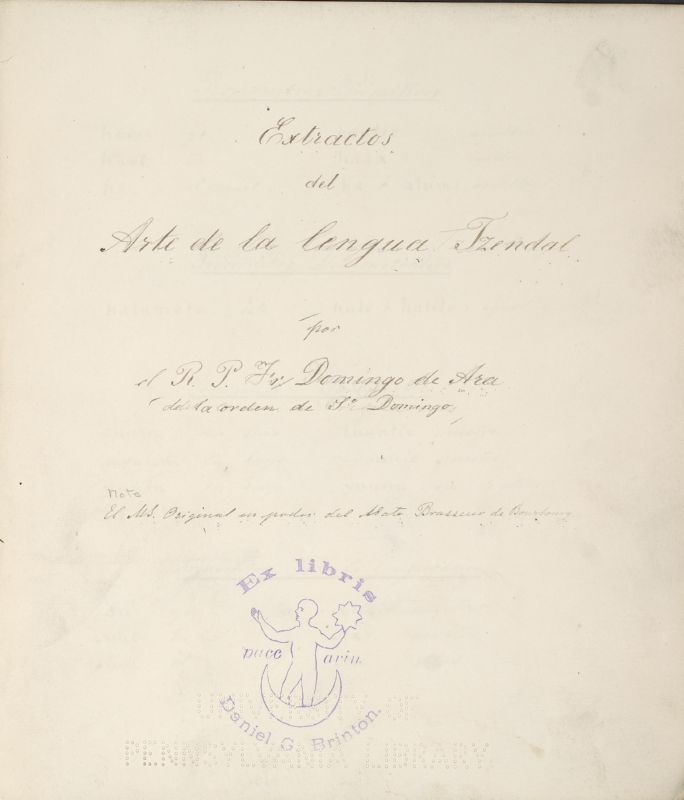 Extractos
del
Arte de la lengua Tzendal
por
el R. P. Fr. Domingo de Ara
de la orden de Sto Domingo
Nota
El MS. Original en poder del Abate Brasseur de Bourbourg
Ex libris
Daniel G. Brinton.
UNIVERSITY OF
PENNSYLVANIA LIBRARY